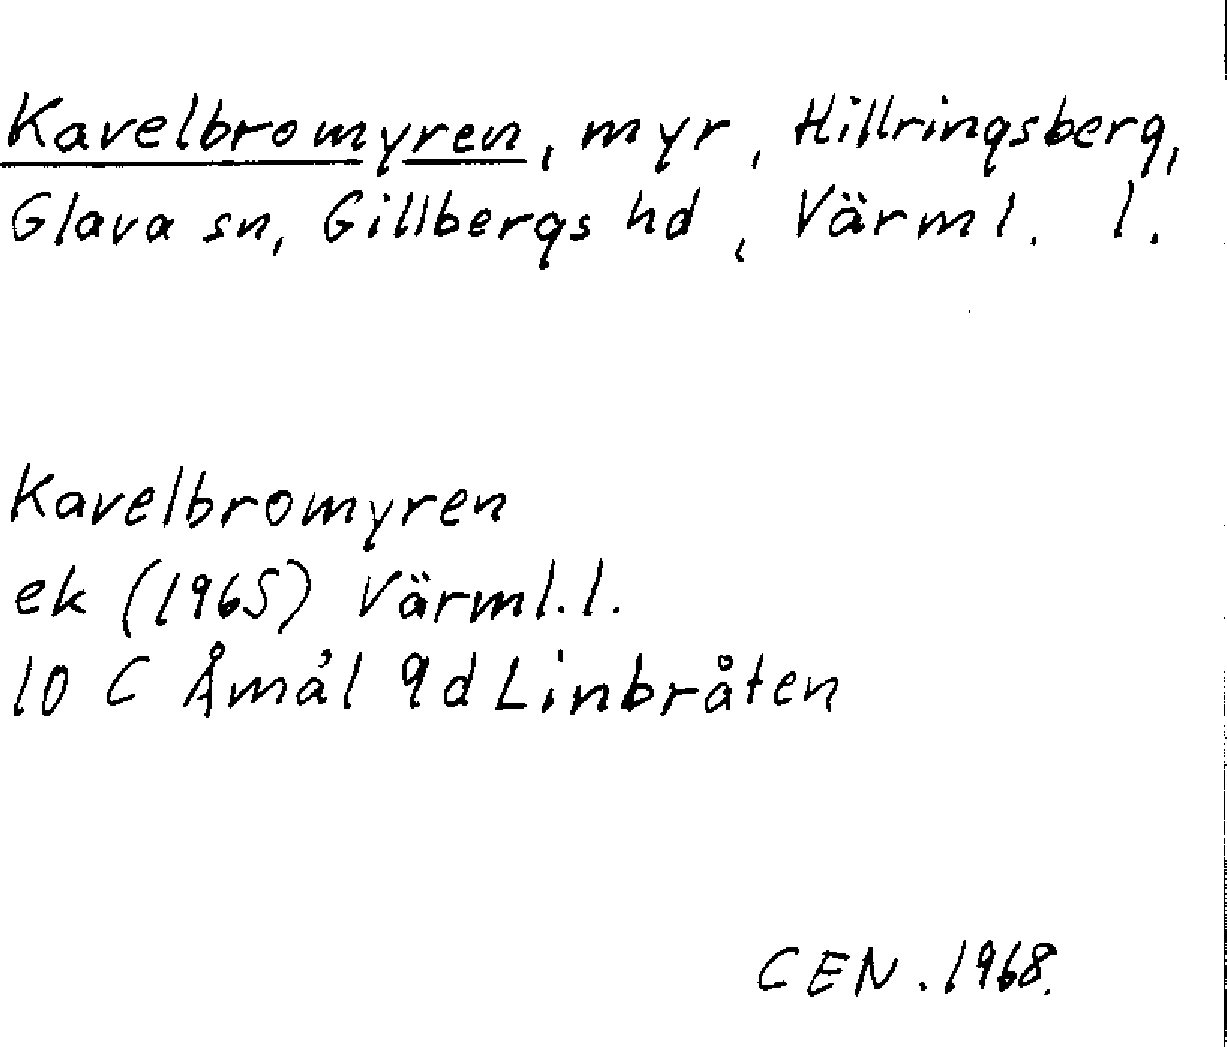 Kavelbromyren, myr, Hillringsberg,
Glava sn, Gillbergs hd, Värml. l.
Kavelbromyren
ek (1965) Värml. l.
10 C Åmål 9d Linbråten
CEN. 1968.